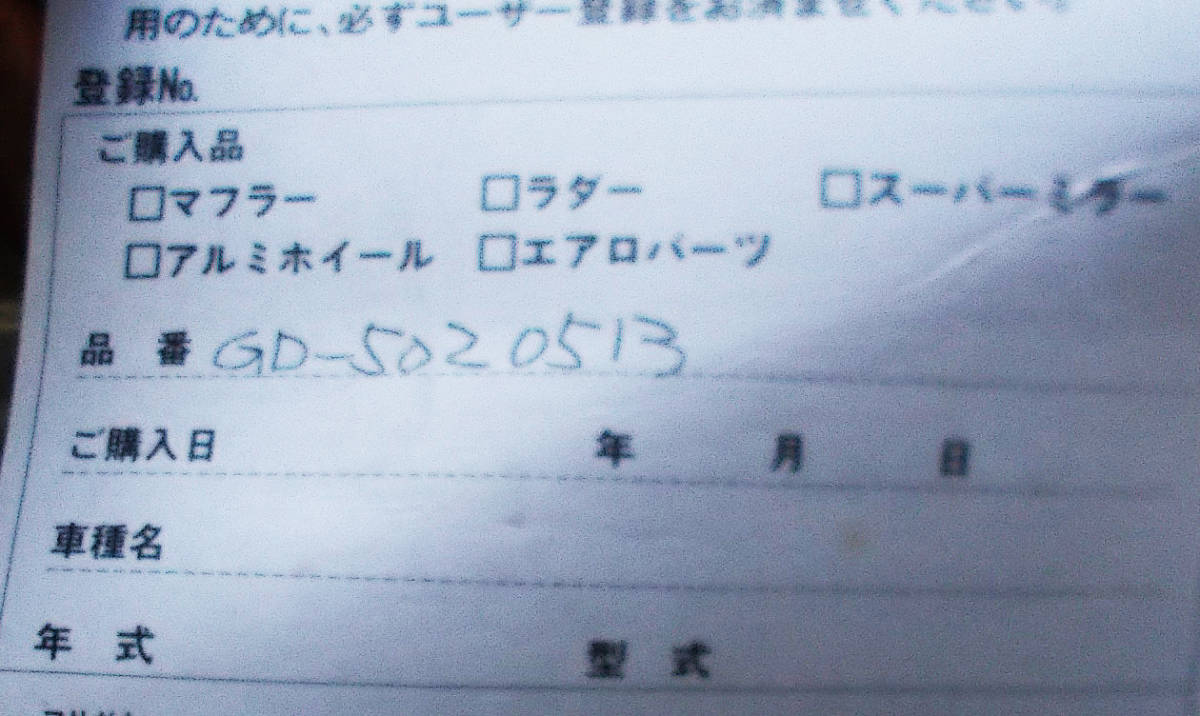 用のために、必ずユーザー登録をお済ませください。
登録No.
ご購入品
□マフラー □ラダー □スーパーミラー
□アルミホイール □エアロパーツ
品 番 GD-5020513
ご購入日 年 月 日
車種名
年 式 型 式